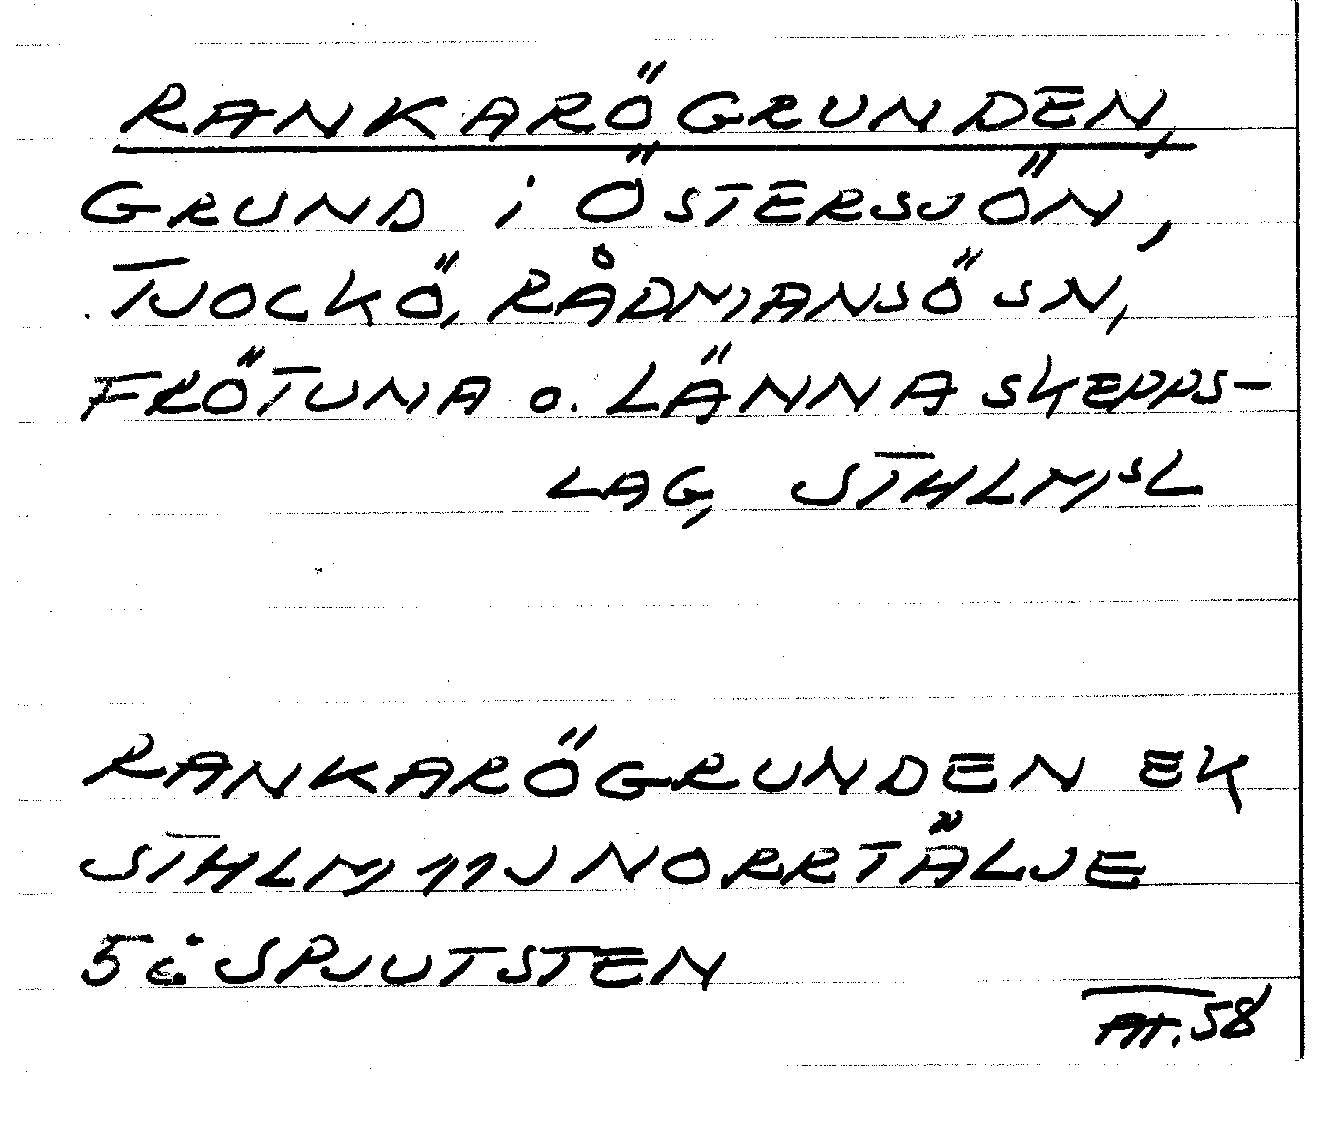 RANKARÖGRUNDEN,
GRUND i ÖSTERSJÖN,
TJOCKÖ, RÅDMANSÖ SN,
FRÖTUNA o. LÄNNA SKEPPS-
LAG, STHLMSL
RANKARÖGRUNDEN EK
STHLM 11J NORRTÄLJE
5c SPJUTSTEN
58